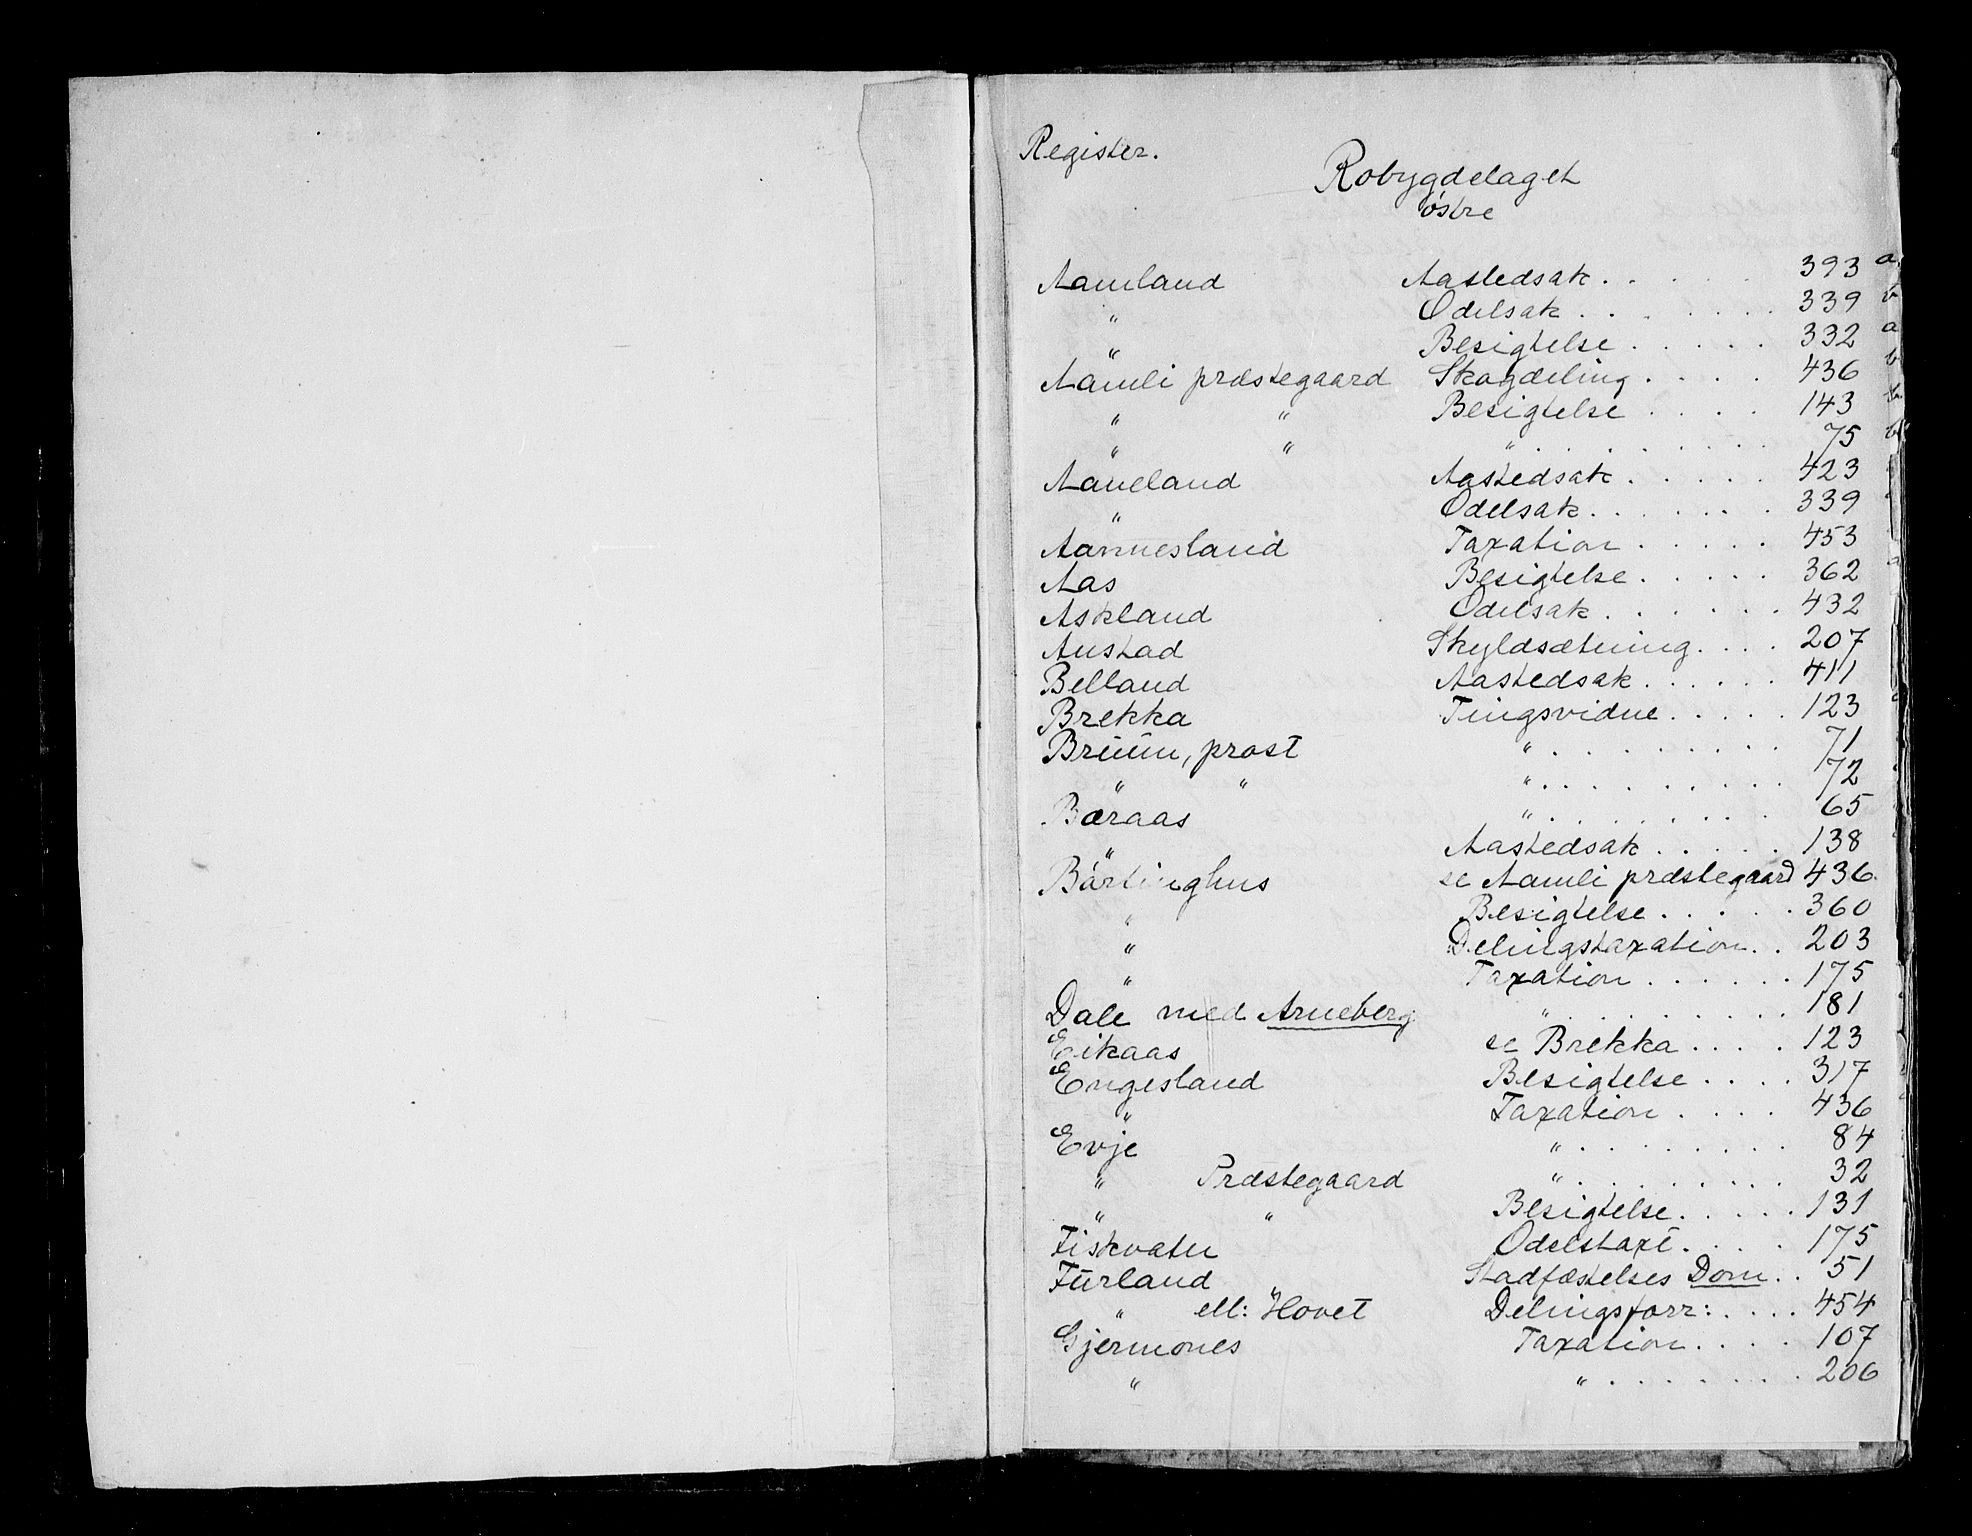 Register.
Robygdelaget
østre
Aamland Aastedsak . . . . . 393 a.
" Odelsak . . . . . . 339 b
" Besigtelse . . . . . 332 a
Aamli præstegaard Skogdeling . . . . 436 b
" " Besigtelse . . . . 143 b.
" " " . . . . . . . . 75 b
Aaneland Aastedsak . . . . . 423
" Odelsak . . . . . . 339
Aannesland Taxation . . . . . 453
Aas Besigtelse . . . . . 362
Askland Odelsak . . . . . . 432
Austad Skyldsætning . . . . 207
Belland Aastedsak . . . . . . 411
Brekka Tingsvidne . . . . . 123
Bruun, prost " . . . . . . . . . 71
" " " . . . . . . . . . 72
Bæraas " . . . . . . . . . 65
" Aastedsak . . . . . 138
Bårtinghus se Aamli præstegaard 436.
" Besigtelse . . . . . 360
" Delingstaxation . . 203
" Taxation . . . . . . 175
Dale med Arneberg " . . . . . . . . . 181
Eikaas se Brekka . . . . 123
Engesland Besigtelse . . . . 317
" Taxation . . . . 436
Evje " . . . . . . . . 84
" Præstegaard " . . . . . . . . . 32
" " Besigtelse . . . . . 131
Fiskvatn Odelstaxt . . . . 175
Furland Stadfæstelses Dom . . 51
" ell: Hovet Delingsforr: . . . . 454
Gjermones Taxation . . . . 107
" " . . . . . . . . 206